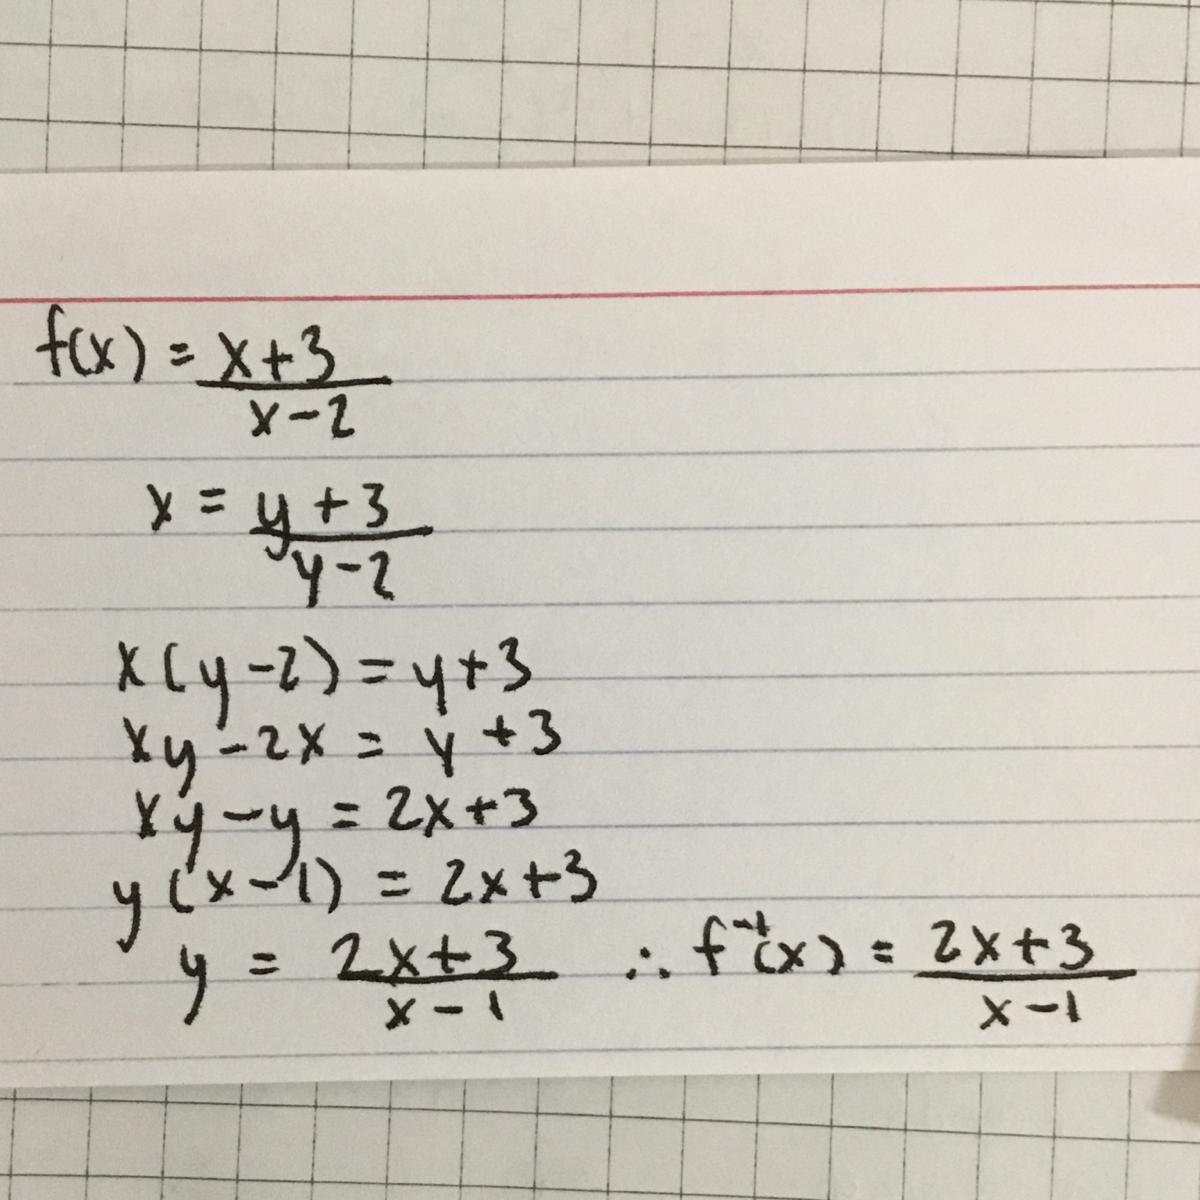 f(x) = x+3 / x-2
x = y+3 / y-2
x(y-2) = y+3
xy-2x = y+3
xy-y = 2x+3
y(x-1) = 2x+3
y = 2x+3 / x-1 ∴ f⁻¹(x) = 2x+3 / x-1